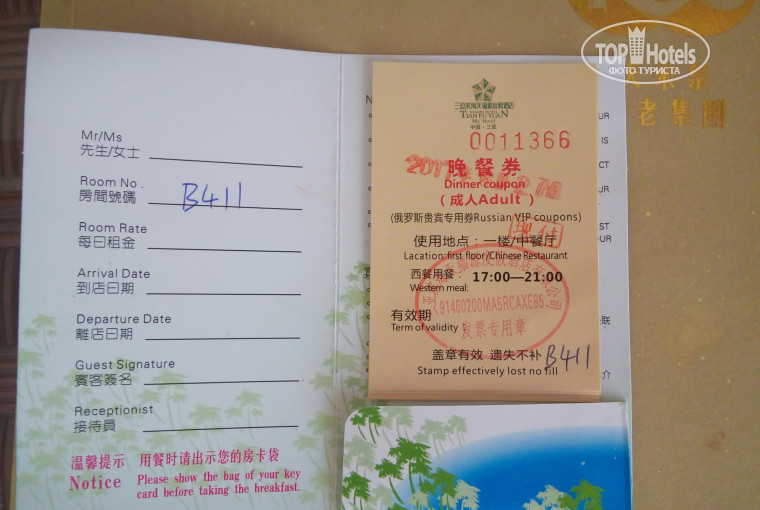 TOP Hotels
ФОТО ТУРИСТА
老集團
Mr/Ms
先生/女士
Room No.
房間號碼
B411
Room Rate
每日租金
Arrival Date
到店日期
Departure Date
離店日期
Guest Signature
賓客簽名
Receptionist
接待員
温馨提示 用餐时请出示您的房卡袋
Notice Please show the bag of your key
card before taking the breakfast.
TIANFUYUAN
My Hotel
中国·三亚
0011366
晚餐券
Dinner coupon
(成人Adult)
(俄罗斯贵宾专用券Russian VIP coupons)
现付
使用地点:一楼/中餐厅
Location:first floor/Chinese Restaurant
西餐用餐:17:00—21:00
Western meal:
91460200MA5RCAXE85
有效期
Term of validity:
发票专用章
盖章有效 遗失不补 B411
Stamp effectively lost no fill